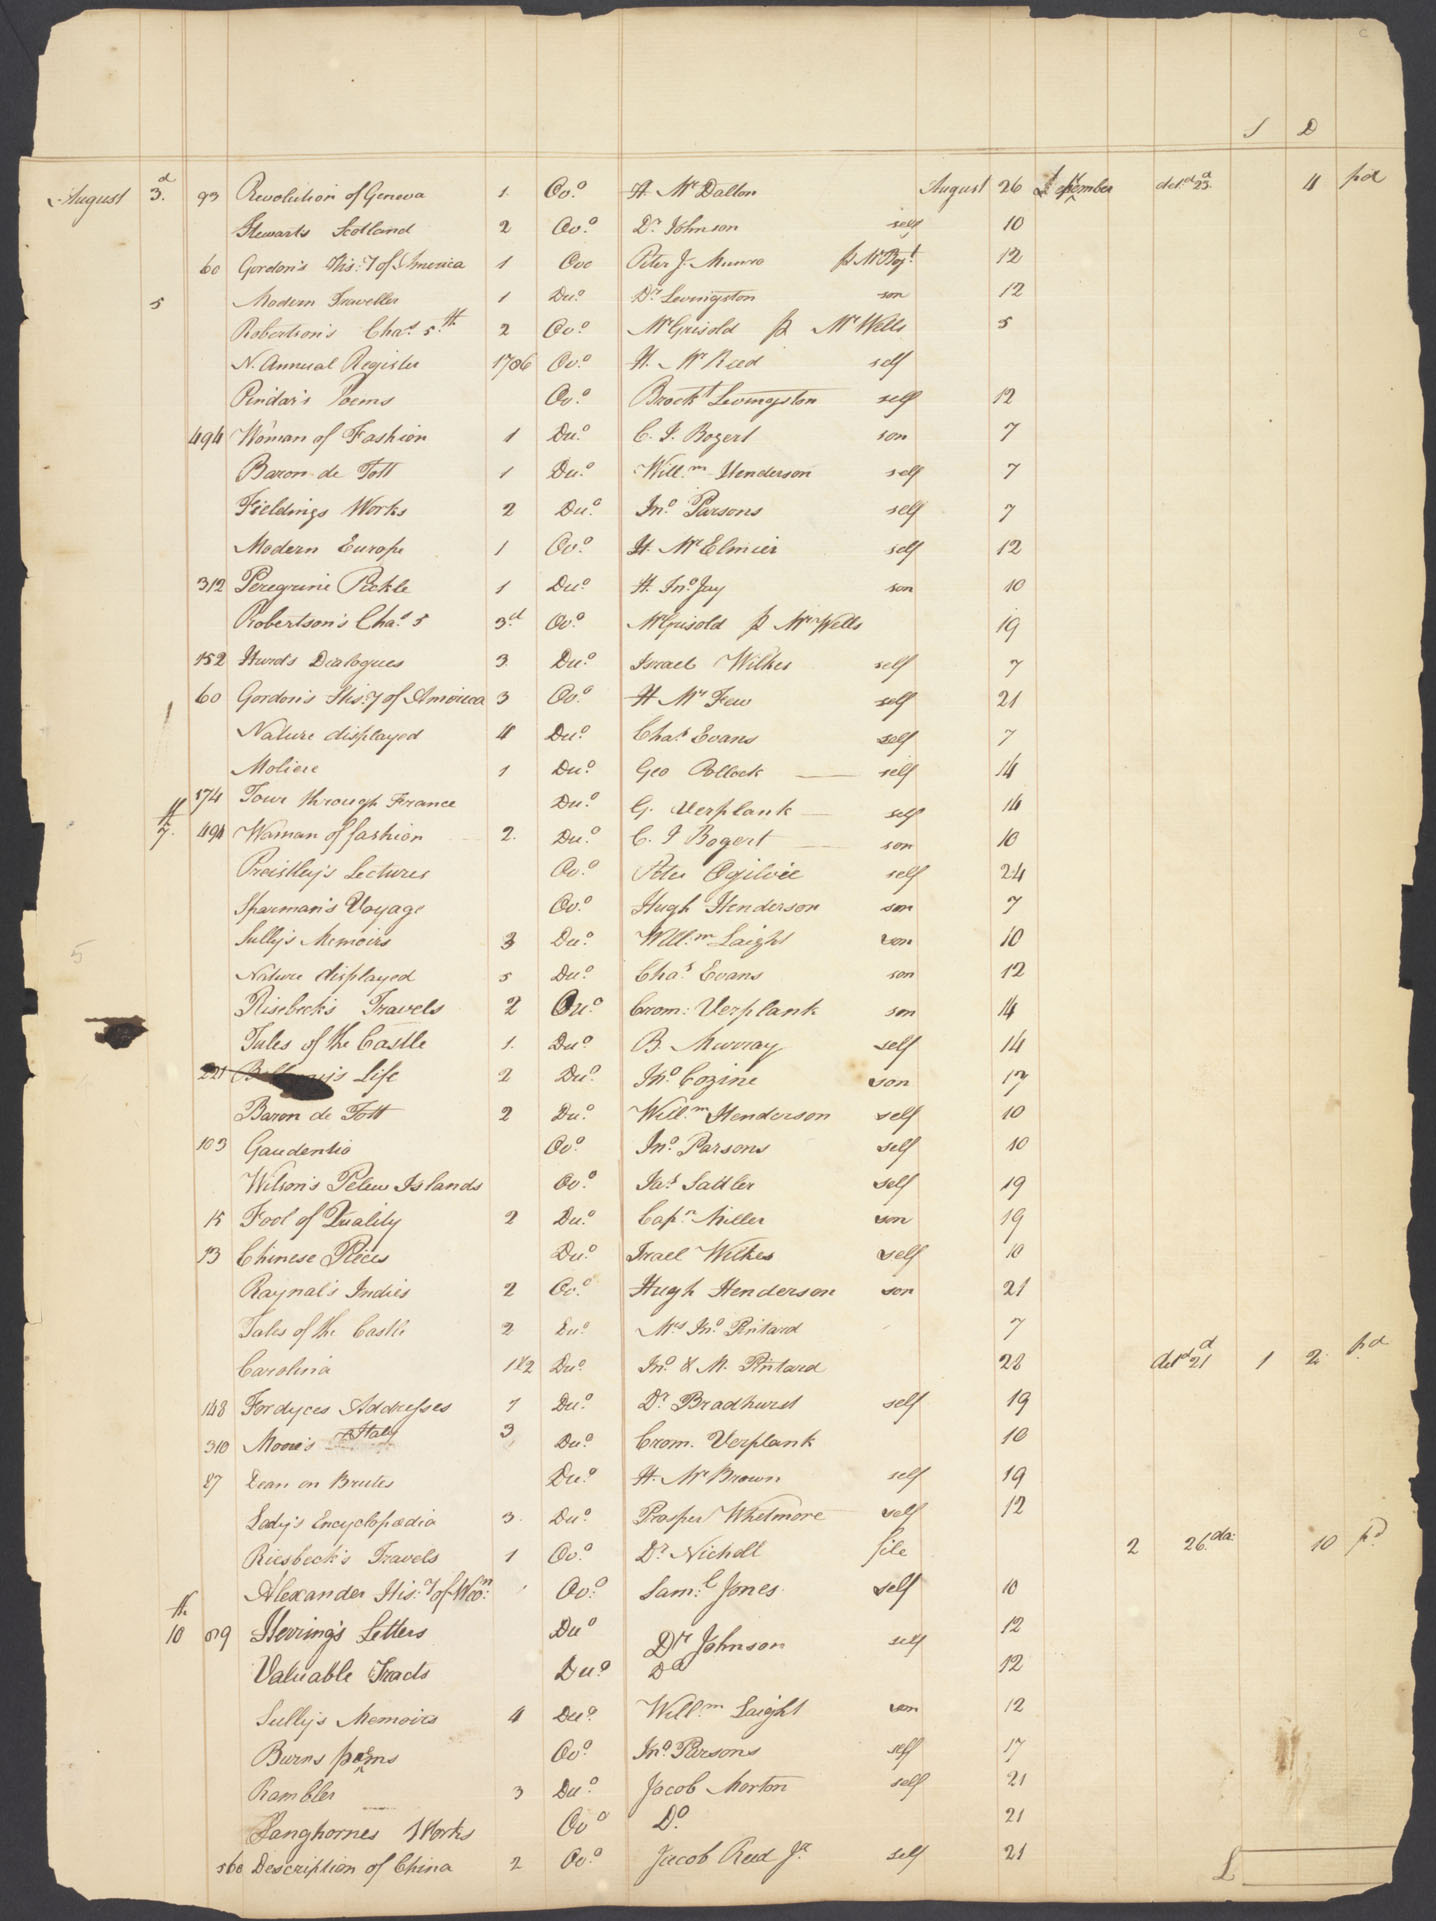 S D
August 3.d 93 Revolution of Geneva 1 Ov.o H. Mr Dalton August 26 September det.d 23.d 4 pd
Stewarts Scotland 2 Ov.o Dr. Johnson self 10
60 Gordon's His:y of America 1 Ovo Peter J. Munro 12
5 Modern Traveller 1 Du.o Dr Levingston son 12
Robertson's Cha.s 5.th 2 Ov.o Mr Grisold p Mr Wells 5
N. Annual Register 1786 Ov.o H. Mr Reed self
Pindar's Poems Ov.o Brock.t Levingston self 12
494 Woman of Fashion 1 Du.o C. I. Bogert son 7
Baron de Tott 1 Du.o Will.m Henderson self 7
Fieldings Works 2 Du.o Jn.o Parsons self 7
Modern Europe 1 Ov.o H. Mr Elmier self 12
312 Peregrine Pickle 1 Du.o H. Jn.o Jay son 10
Robertson's Cha.s 5 3.d Ov.o Mr Grisold p Mr Wells 19
152 Hurds Dialogues 3. Du.o Israel Wilkes self 7
60 Gordon's His:y of America 3 Ov.o H Mr Few self 21
Nature displayed 4 Du.o Cha.s Evans self 7
Moliere 1 Du.o Geo Pollock self 14
574 Tour through France Du.o G. Verplank self 14
7.th 494 Woman of fashion 2. Du.o C. I Bogert son 10
Preistley's Lectures Ov.o Peter Ogilvie self 24
Sparman's Voyage Ov.o Hugh Henderson son 7
Sully's Memoirs 3 Du.o Will.m Laight son 10
5 Nature displayed 5 Du.o Cha.s Evans son 12
Risebeck's Travels 2 Ov.o Crom: Verplank son 14
Tales of the Castle 1. Du.o B. Murray self 14
221 Life 2 Du.o Jno. Cozine son 17
Baron de Tott 2 Du.o Will.m Henderson self 10
103 Gaudentio Ov.o Jn.o Parsons self 10
Wilson's Pelew Islands Ov.o Ja.s Sattler self 19
15 Fool of Quality 2 Du.o Cap.n Miller son 19
13 Chinese Pieces Du.o Israel Wilkes self 10
Raynal's Indies 2 Ov.o Hugh Henderson son 21
Tales of the Castle 2 Du.o Mrs Jn.o Pintard 7
Carolina 1&2 Du.o Jn.o & M. Pintard 28 det.d 21d 1 2 pd
148 Fordyces Addresses 1 Du.o Dr Bradhurst self 19
310 Moore's Italy 3 Du.o Crom. Verplank 10
27 Dean on Brutes Du.o H. Mr Brown self 19
Lady's Encyclopædia 3. Du.o Prosper Whetmore self 12
Riesbeck's Travels 1 Ov.o Dr. Nicholl file 2 26 da: 10 pd
Alexander His:y of Wo:n 1 Ov.o Sam:l Jones self 10
10th 89 Herring's Letters Duo Dr Johnson self 12
Valuable Tracts Du.o Do 12
Sully's Memoirs 4 Du.o Will.m Laight son 12
Burns poems Ov.o Jn.o Parsons self 17
Rambler 3 Du.o Jacob Morton self 21
Langhornes Works Ov.o Do. 21
360 Description of China 2 Ov.o Jacob Reed Jr. self 21
£